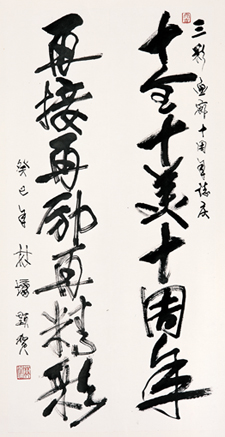 三彩画廊十周年志庆
十全十美十周年
再接再励再精彩
癸巳年
敬贺